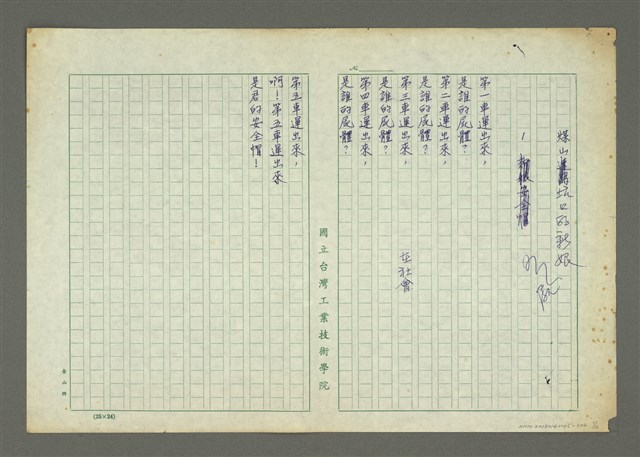 煤山坑口的新娘
1
第一車運出來,
是誰的屍體?
第二車運出來,
是誰的屍體?
第三車運出來,
是誰的屍體?
第四車運出來,
是誰的屍體?
在社會
№
國立台灣工業技術學院
第五車運出來,
啊!第五車運出來
是君的安全帽!
(25×24)
金山牌